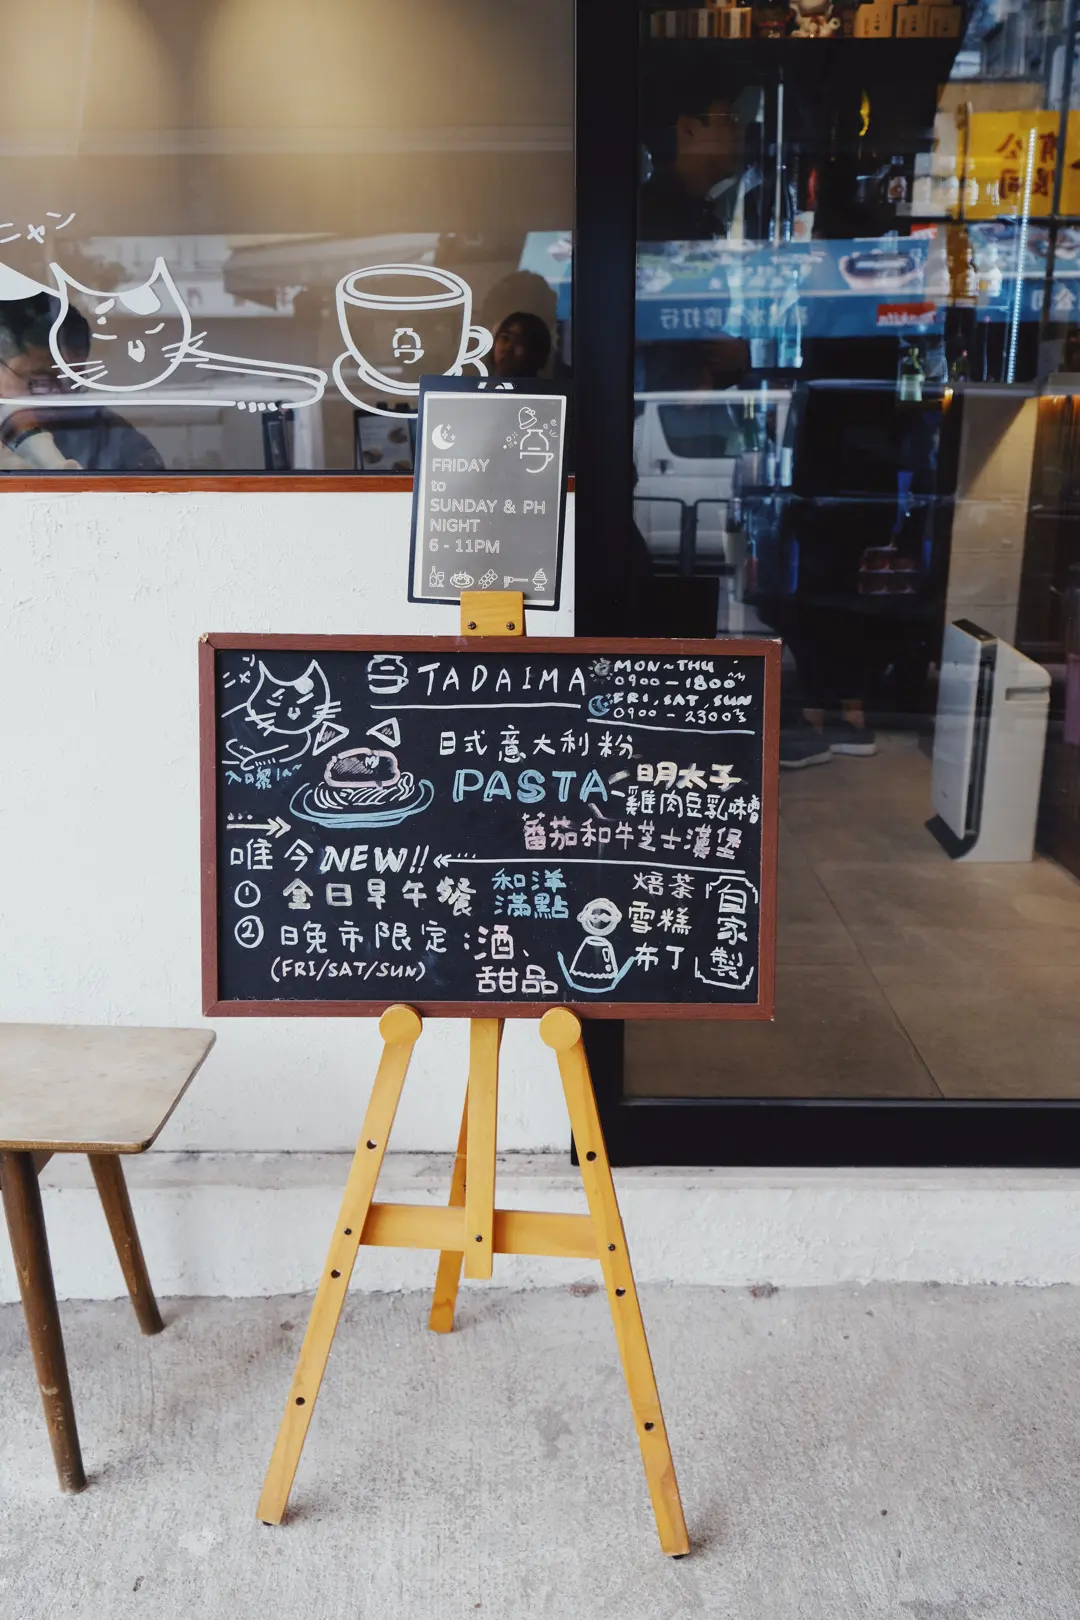 ニャン
FRIDAY
to
SUNDAY & PH
NIGHT
6 - 11PM
TADAIMA
MON~THU
0900-1800
FRI, SAT, SUN
0900-2300
日式意大利粉
PASTA
明太子
雞肉豆乳味噌
蕃茄和牛芝士漢堡
唯今NEW!!
① 全日早午餐
和洋
滿點
② 晚市限定:酒、
甜品
(FRI/SAT/SUN)
焙茶
雪糕
布丁
自家製
有公
限司